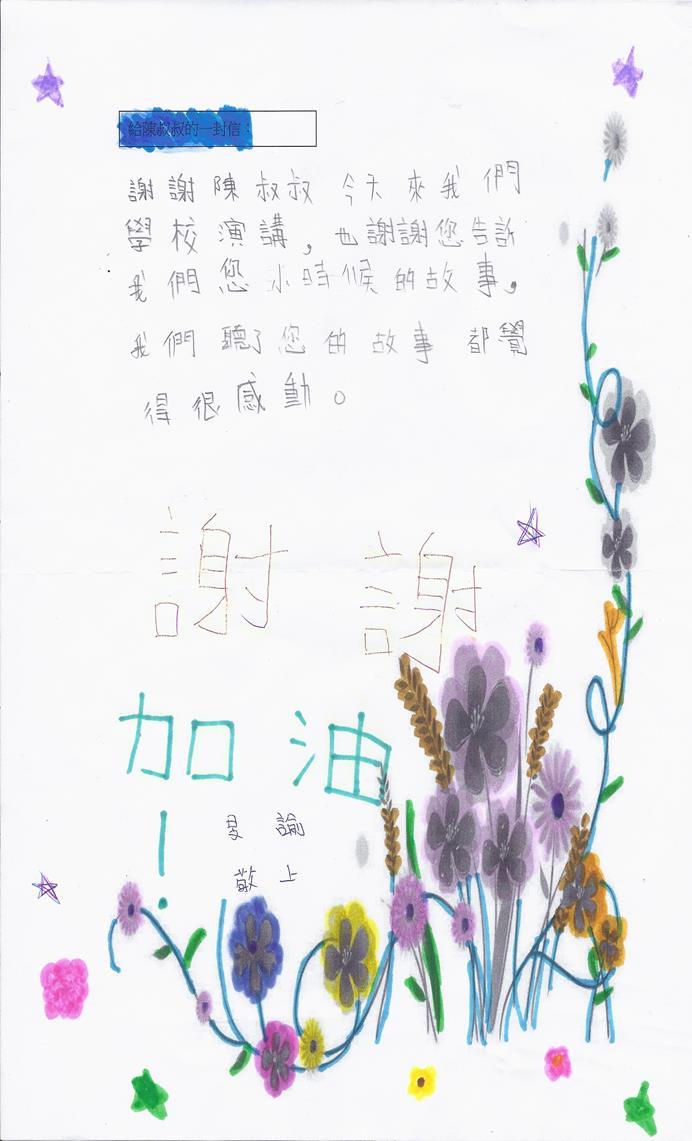 給陳叔叔的一封信：
謝謝陳叔叔今天來我們
學校演講，也謝謝您告訴
我們您小時候的故事，
我們聽了您的故事都覺
得很感動。
謝謝
加油
！
諭
敬上